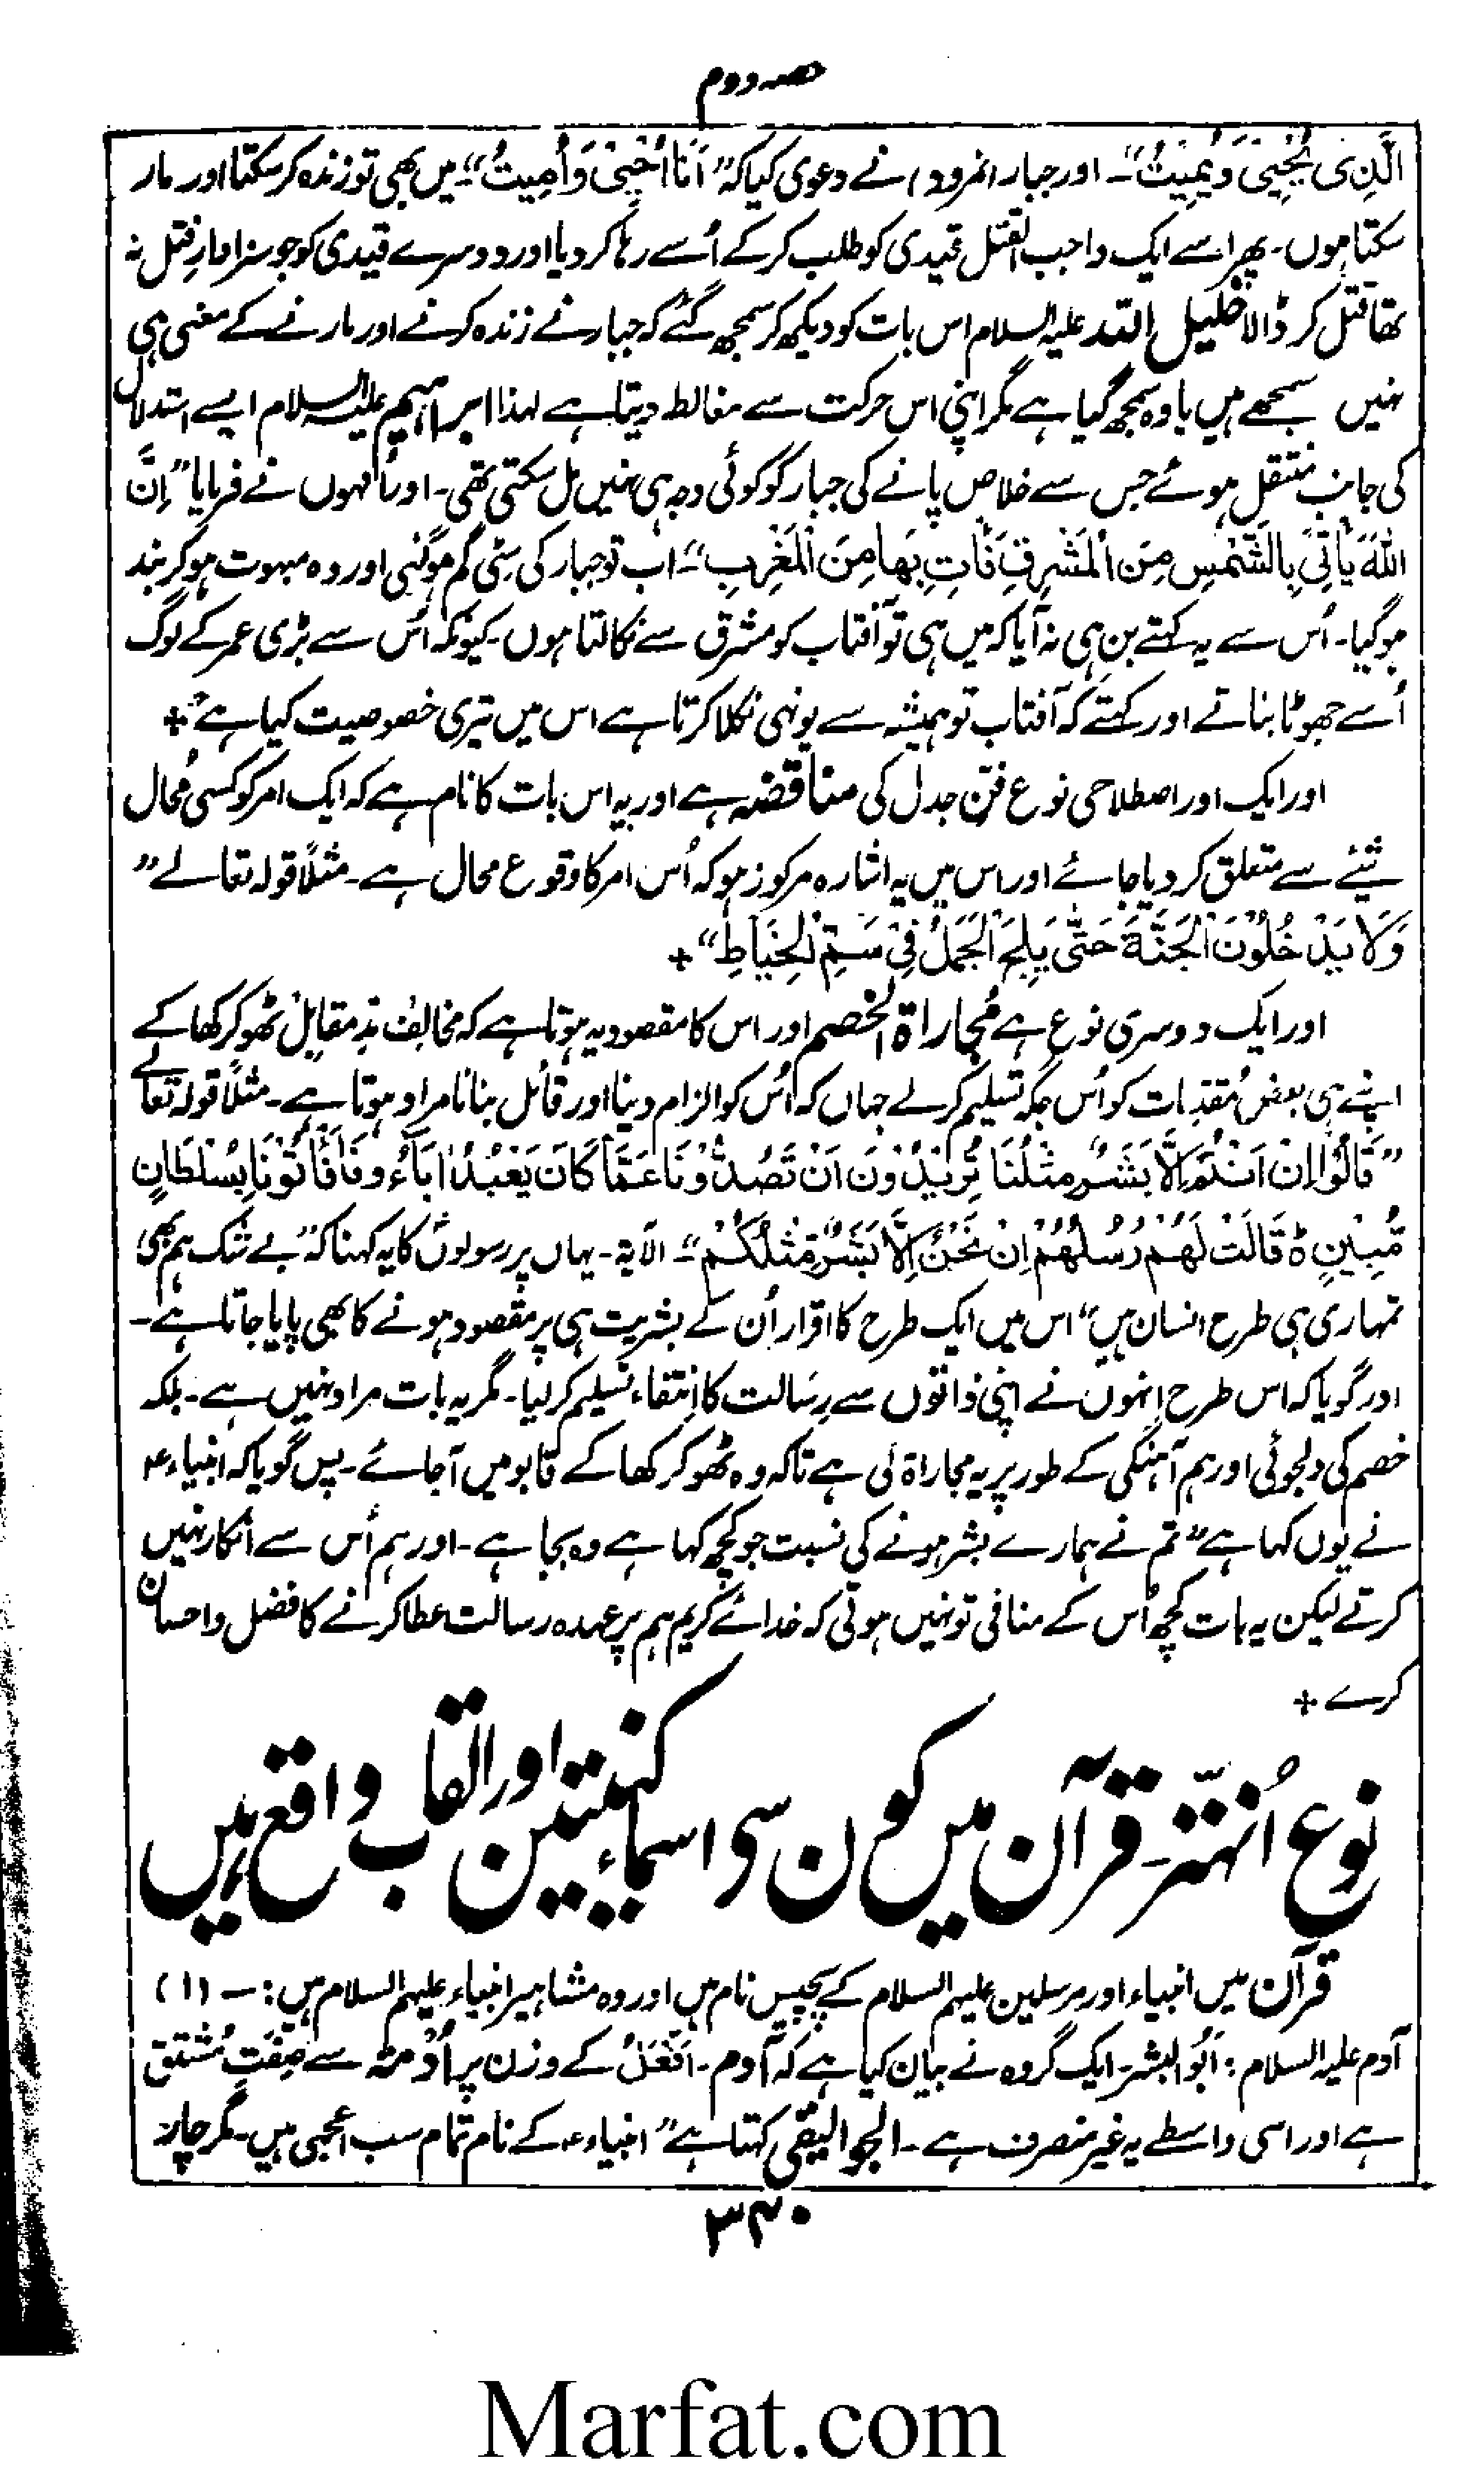 حصہ دوم
الَّذِی یُحْیِیْ وَیُمِیْتُ"۔ اور جبار (نمرود) نے دعوی کیا کہ "اَنَا اُحْیِیْ وَاُمِیْتُ"۔ میں بھی تو زندہ کر سکتا اور مار
سکتا ہوں۔ پھر اسے ایک واجب القتل قیدی کو طلب کر کے اُسے رہا کر دیا اور دوسرے قیدی کو جو سزاوارِ قتل نہ
تھا قتل کر ڈالا خلیل اللہ علیہ السلام اس بات کو دیکھ کر سمجھ گئے کہ جبار نے زندہ کرنے اور مارنے کے معنی ہی
نہیں سمجھے ہیں یا وہ سمجھ گیا ہے مگر اپنی اس حرکت سے مغالطہ دیتا ہے لہذا ابراہیم علیہ السلام ایسے استدلال
کی جانب منتقل ہوئے جس سے خلاص پانے کی جبار کو کوئی وجہ ہی نہیں مل سکتی تھی۔ اور اُنہوں نے فرمایا "اِنَّ
اللّٰهَ یَأْتِیْ بِالشَّمْسِ مِنَ الْمَشْرِقِ فَأْتِ بِهَا مِنَ الْمَغْرِبِ"۔ اب تو جبار کی سِٹی گم ہو گئی اور وہ مبہوت ہو کر بند
ہو گیا۔ اُس سے یہ کہتے بن ہی نہ آیا کہ میں ہی تو آفتاب کو مشرق سے نکالتا ہوں۔ کیونکہ اُس سے بڑی عمر کے لوگ
اُسے جھوٹا بناتے اور کہتے کہ آفتاب تو ہمیشہ سے یونہی نکلا کرتا ہے اس میں تیری خصوصیت کیا ہے؟ +
اور ایک اور اصطلاحی نوع فنِ جدل کی مناقضہ ہے اور یہ اس بات کا نام ہے کہ ایک امر کو کسی مُحال
شیئے سے متعلق کر دیا جائے اور اس میں یہ اشارہ مرکوز ہو کہ اُس امر کا وقوع محال ہے۔ مثلاً قولہ تعالےٰ "
وَلَا یَدْخُلُوْنَ الْجَنَّةَ حَتّٰی یَلِجَ الْجَمَلُ فِیْ سَمِّ الْخِیَاطِ" +
اور ایک دوسری نوع ہے مُجاراۃ الخصم اور اس کا مقصود یہ ہوتا ہے کہ مخالف مدِّ مقابل ٹھوکر کھا کے
اپنے ہی بعض مُقدمات کو اُس جگہ تسلیم کر لے جہاں کہ اُس کو الزام دینا اور قائل بنانا مراد ہوتا ہے۔ مثلاً قولہ تعالےٰ
"قَالُوْا اِنْ اَنْتُمْ اِلَّا بَشَرٌ مِّثْلُنَا تُرِیْدُوْنَ اَنْ تَصُدُّوْنَا عَمَّا كَانَ یَعْبُدُ اٰبَآءُ ونَا فَأْتُوْنَا بِسُلْطَانٍ
مُّبِیْنٍ ہ قَالَتْ لَهُمْ رُسُلُهُمْ اِنْ نَّحْنُ اِلَّا بَشَرٌ مِّثْلُكُمْ"۔ الآیہ۔ یہاں پر رسولوں کا یہ کہنا کہ "بے شک ہم بھی
تمہاری ہی طرح انسان ہیں" اس میں ایک طرح کا اقرار اُن کے بشریت ہی پر مقصود ہونے کا بھی پایا جاتا ہے۔
اور گویا کہ اس طرح اِنہوں نے اپنی ذاتوں سے رِسالت کا اِنتفاء تسلیم کر لیا۔ مگر یہ بات مراد نہیں ہے۔ بلکہ
خصم کی دلجوئی اور ہم آہنگی کے طور پر یہ مجاراۃ لی ہے تاکہ وہ ٹھوکر کھا کے قابو میں آجائے۔ پس گویا کہ انبیاء ؑ
نے یوں کہا ہے "تم نے ہمارے بشر ہونے کی نسبت جو کچھ کہا ہے وہ بجا ہے۔ اور ہم اُس سے انکار نہیں
کرتے لیکن یہ بات کچھ اُس کے منافی تو نہیں ہوتی کہ خدائے کریم ہم پر عہدہ رسالت عطا کرنے کا فضل و احسان
کرے +
نوع اُنہتّر۔ قرآن میں کون سی اسماء کنیتیں اور القاب واقع ہیں
قرآن میں انبیاء اور مرسلین علیہم السلام کے پچیس نام ہیں اور وہ مشاہیر انبیاء علیہم السلام ہیں: – (۱)
آدم علیہ السلام: اَبُو البشر۔ ایک گروہ نے بیان کیا ہے کہ آدم۔ اَفْعَلُ کے وزن پر اُدْمَتہ سے صِفتِ مُشتق
ہے اور اسی واسطے یہ غیر منصرف ہے۔ الجوالیقی کہتا ہے "انبیاء ؑ کے نام تمام سب اعجمی ہیں۔ مگر چار
۳۴۰
Marfat.com